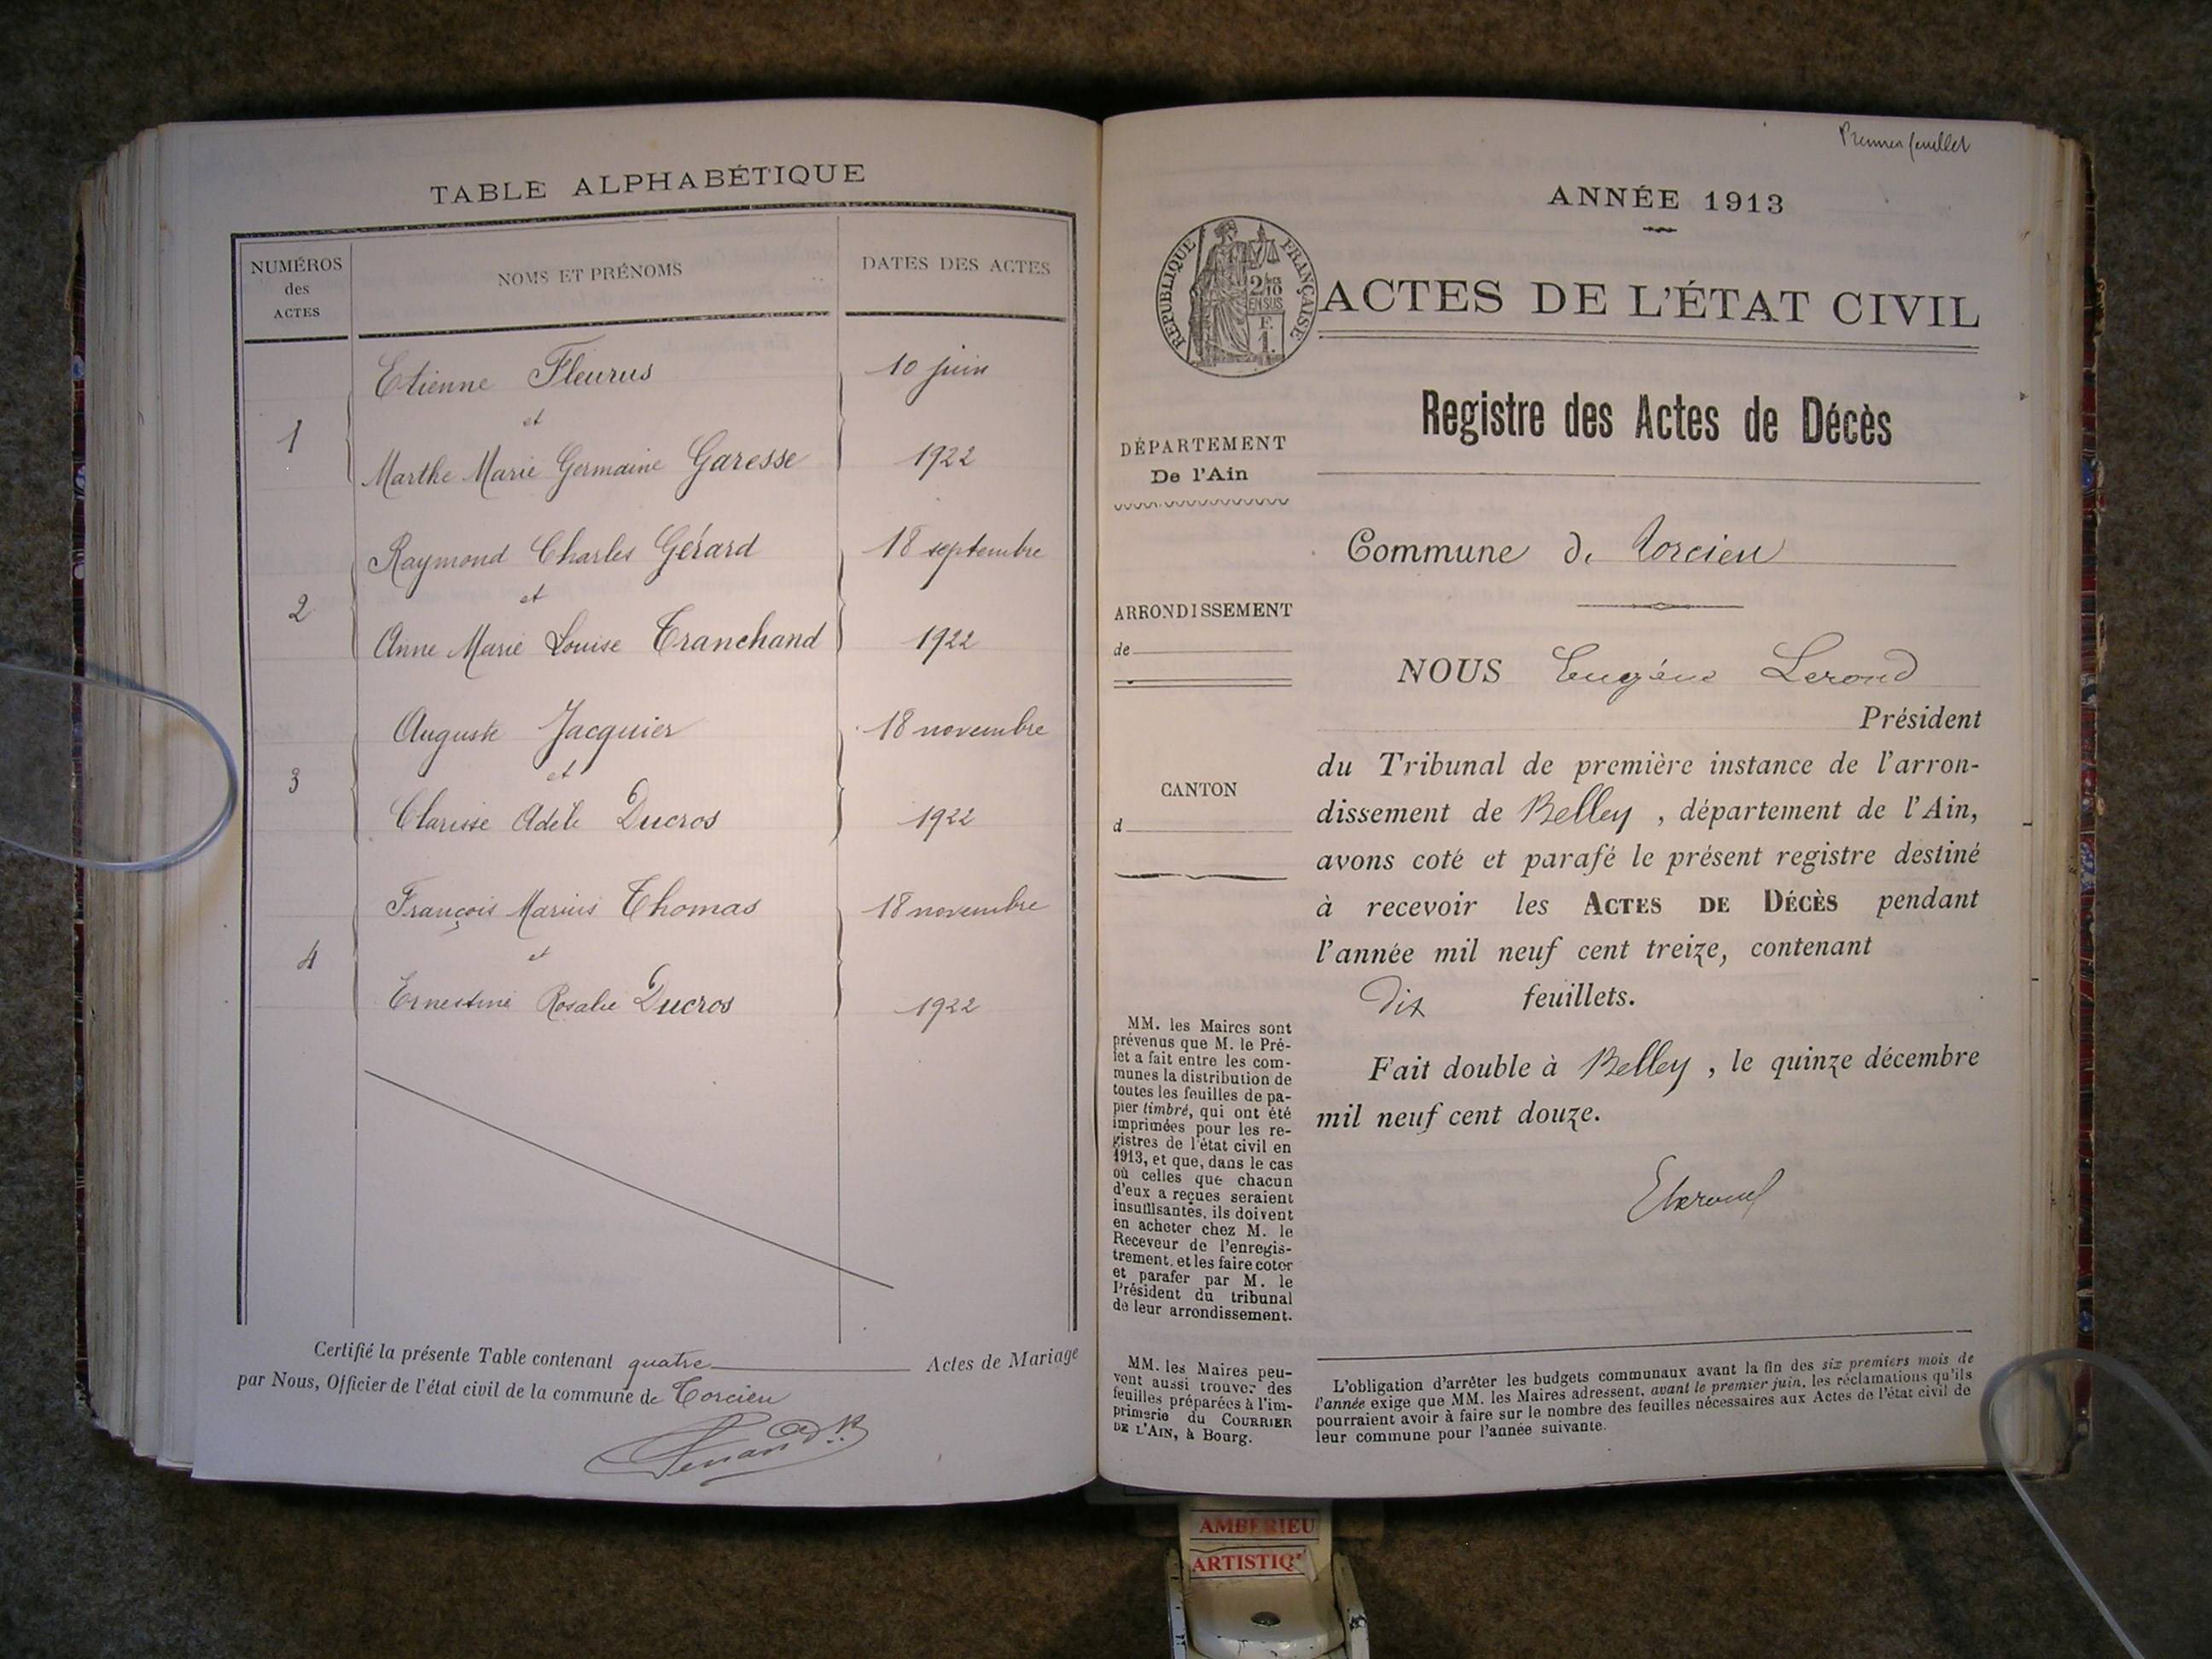 TABLE ALPHABÉTIQUE
NUMÉROS
des
ACTES
NOMS ET PRÉNOMS
DATES DES ACTES
Etienne Fleurus
10 juin
1
et
Marthe Marie Germaine Garesse
1922
Raymond Charles Gérard
18 septembre
2
et
Anne Marie Louise Tranchand
1922
Auguste Jacquier
18 novembre
3
et
Clarisse Adèle Ducros
1922
François Marius Thomas
18 novembre
4
et
Ernestine Rosalie Ducros
1922
Certifié la présente Table contenant quatre Actes de Mariage
par Nous, Officier de l'état civil de la commune de Torcieu
Premier feuillet
ANNÉE 1913
RÉPUBLIQUE FRANÇAISE
2/10
EN SUS
F.
1.
ACTES DE L'ÉTAT CIVIL
Registre des Actes de Décès
DÉPARTEMENT
De l'Ain
Commune de Torcieu
ARRONDISSEMENT
de
NOUS Eugène Lerond
Président
du Tribunal de première instance de l'arron-
dissement de Belley, département de l'Ain,
avons coté et parafé le présent registre destiné
à recevoir les ACTES DE DÉCÈS pendant
l'année mil neuf cent treize, contenant
Dix feuillets.
Fait double à Belley, le quinze décembre
mil neuf cent douze.
CANTON
d
MM. les Maires sont
prévenus que M. le Pré-
fet a fait entre les com-
munes la distribution de
toutes les feuilles de pa-
pier timbré, qui ont été
imprimées pour les re-
gistres de l'état civil en
1913, et que, dans le cas
où celles que chacun
d'eux a reçues seraient
insuffisantes, ils doivent
en acheter chez M. le
Receveur de l'enregis-
trement, et les faire coter
et parafer par M. le
Président du tribunal
de leur arrondissement.
MM. les Maires peu-
vent aussi trouver des
feuilles préparées à l'im-
primerie du COURRIER
DE L'AIN, à Bourg.
L'obligation d'arrêter les budgets communaux avant la fin des six premiers mois de
l'année exige que MM. les Maires adressent, avant le premier juin, les réclamations qu'ils
pourraient avoir à faire sur le nombre des feuilles nécessaires aux Actes de l'état civil de
leur commune pour l'année suivante.
AMBERIEU
ARTISTIQ